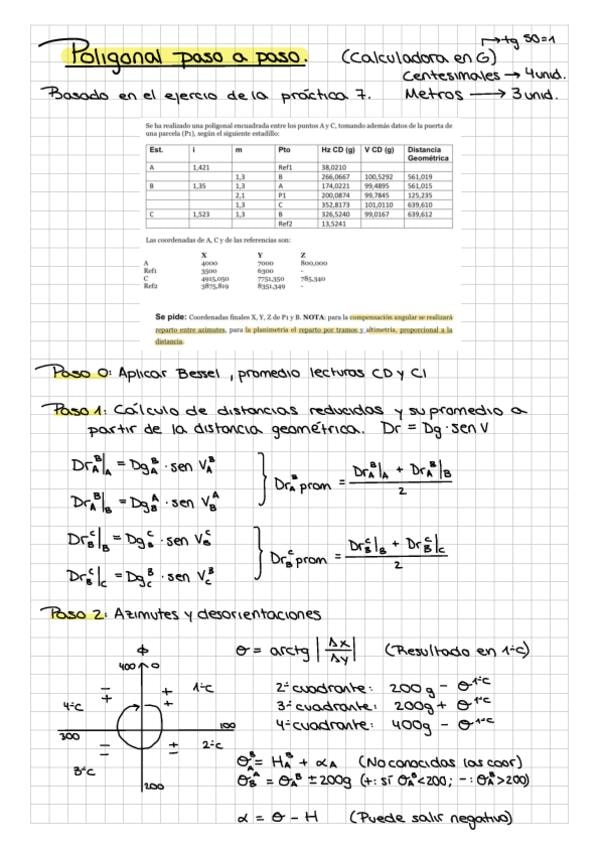 Poligonal paso a paso. (Calculadora en G) → tg 50=1
Centesimales → 4 und.
Basado en el ejercio de la práctica 7. Metros → 3 und.
Se ha realizado una poligonal encuadrada entre los puntos A y C, tomando además datos de la puerta de
una parcela (P1), según el siguiente estadillo:
Est. i m Pto Hz CD (g) V CD (g) Distancia Geométrica
A 1,421 Ref1 38,0210
1,3 B 266,0667 100,5292 561,019
B 1,35 1,3 A 174,0221 99,4895 561,015
2,1 P1 200,0874 99,7845 125,235
1,3 C 352,8173 101,0110 639,610
C 1,523 1,3 B 326,5240 99,0167 639,612
Ref2 13,5241
Las coordenadas de A, C y de las referencias son:
X Y Z
A 4000 7000 800,000
Ref1 3500 6300 -
C 4915,050 7751,350 785,340
Ref2 3875,819 8351,349 -
Se pide: Coordenadas finales X, Y, Z de P1 y B. NOTA: para la compensación angular se realizará
reparto entre azimutes, para la planimetría el reparto por tramos y altimetría, proporcional a la
distancia.
Paso 0: Aplicar Bessel, promedio lecturas CD y CI
Paso 1: Cálculo de distancias reducidas y su promedio a
partir de la distancia geométrica. Dr = Dg · sen V
Dr_A^B|_A = Dg_A^B · sen V_A^B
Dr_A^B|_B = Dg_B^A · sen V_B^A
Dr_A^B prom = (Dr_A^B|_A + Dr_A^B|_B) / 2
Dr_B^C|_B = Dg_B^C · sen V_B^C
Dr_B^C|_C = Dg_C^B · sen V_C^B
Dr_B^C prom = (Dr_B^C|_B + Dr_B^C|_C) / 2
Paso 2: Azimutes y desorientaciones
θ = arctg |Δx/Δy| (Resultado en 1ºc)
400 0
- + + + 1ºc
4ºc
300 100
- - + - 2ºc
3ºc
200
2º cuadrante: 200g - θ^1ºc
3º cuadrante: 200g + θ^1ºc
4º cuadrante: 400g - θ^1ºc
θ_A^B = H_A^B + α_A (No conocidas las coor)
θ_B^A = θ_A^B ± 200g (+: sí θ_A^B<200; -: θ_A^B>200)
α = θ - H (Puede salir negativo)